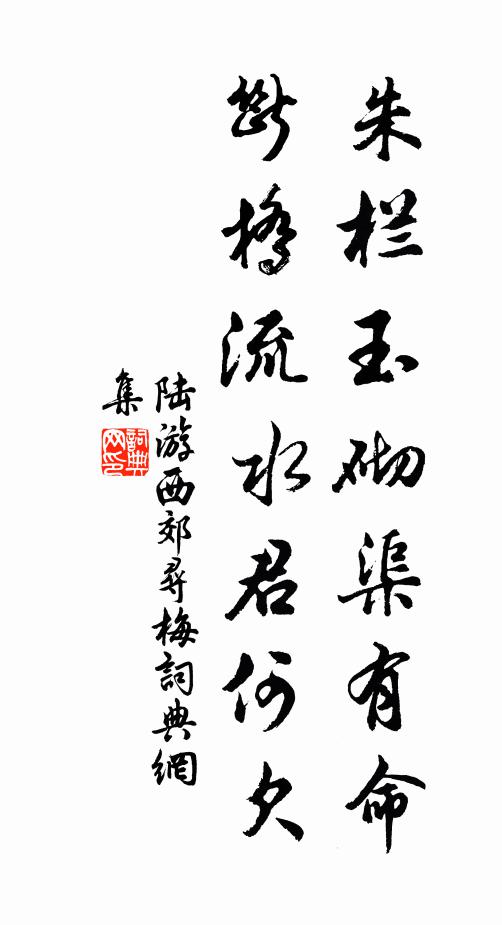 朱栏玉砌渠有命
断橋流水君何欠
陆游西郊尋梅詞典網
集
詞典网印